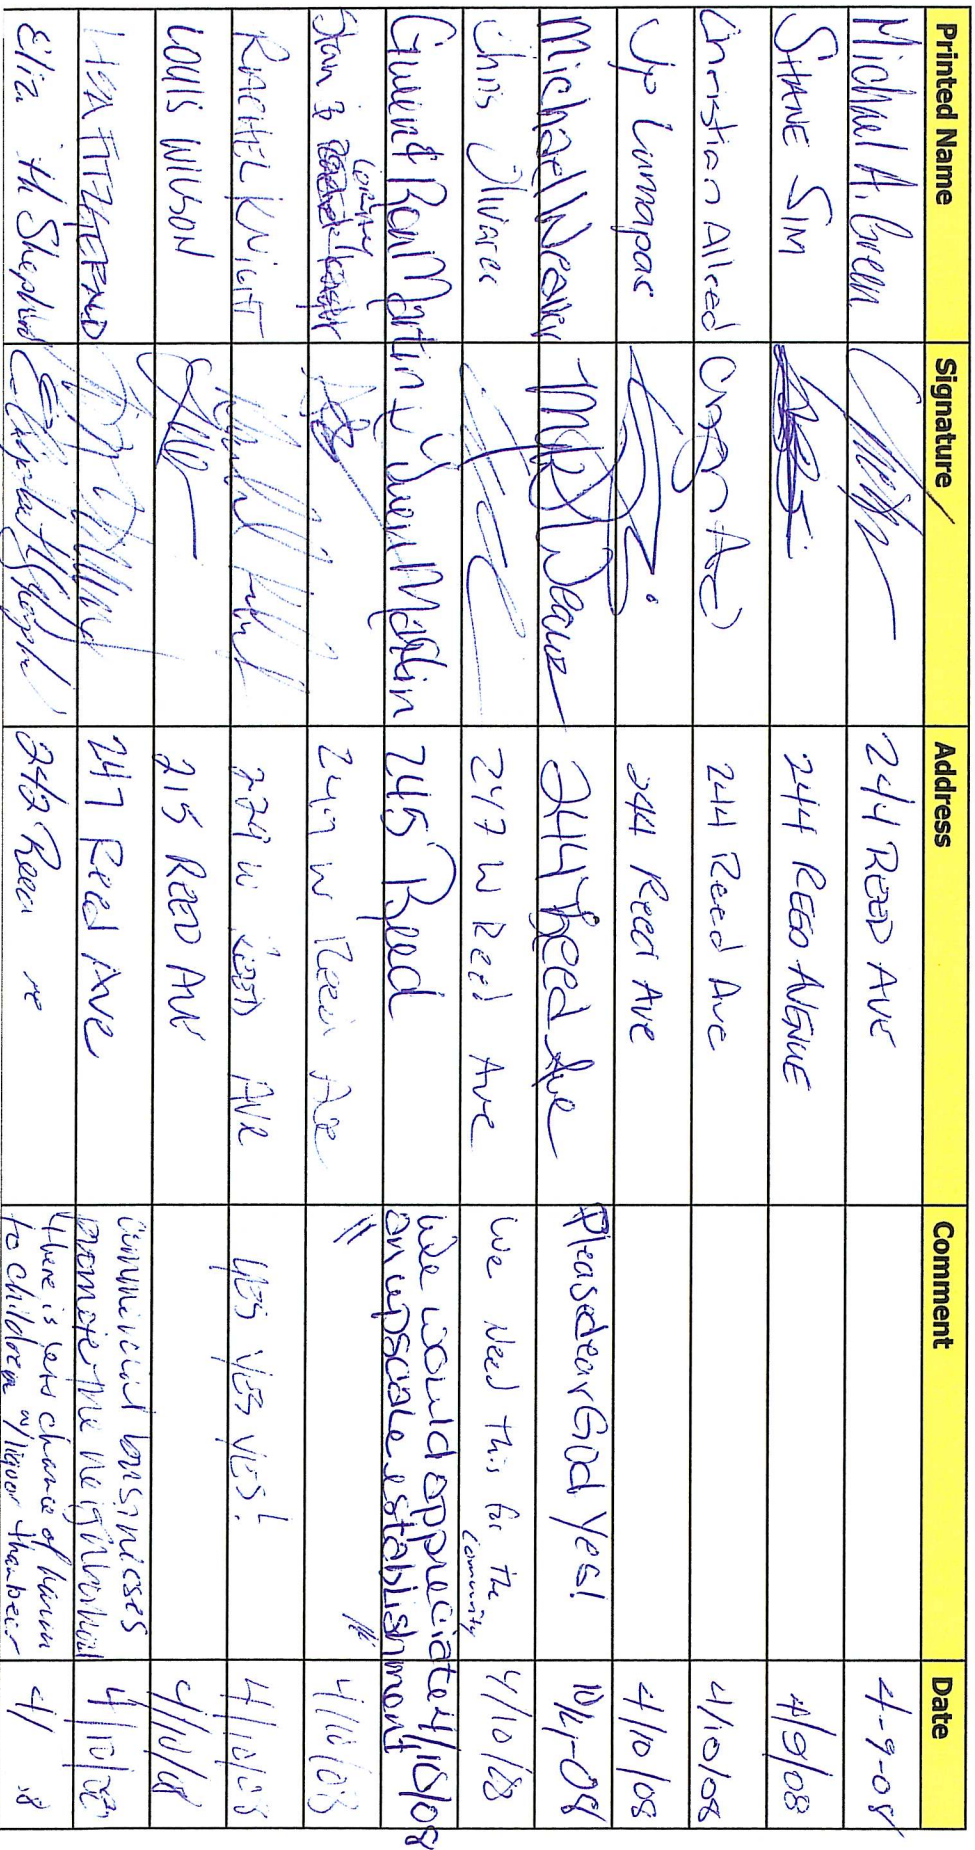 Printed Name Signature Address Comment Date
Michael A. Green 244 REED AVE 4-9-08
SHANE SIM 244 REED AVENUE 4/9/08
Christian Allred 244 Reed Ave 4/10/08
244 Reed Ave 4/10/08
Michael Weaver 244 Reed Ave Please dear God Yes!
Chris 247 W Reed Ave We Need this for the community 4/10/08
Gwen & Ron Martin Gwen Martin 245 Reed We would appreciate 4/10/08
an upscale establishment
Stan & 247 W Reed Ave " 4/10/08
RACHEL KNIGHT W AVE YES YES YES! 4/10/08
LOUIS WILSON 215 REED AVE 4/10/08
FITZGERALD 247 Reed Ave Commercial businesses 4/10/08
promote the neighborhood
Eliz. H Shepherd Elizabeth H Shepherd 242 Reed there is less chance of harm 4/ 08
to children w/liquor than beer